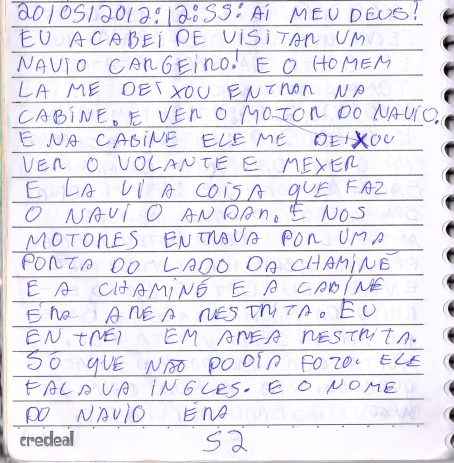 20/05/2012:12:55: AI MEU DEUS!
EU ACABEI DE VISITAR UM
NAVIO CARGEIRO! E O HOMEM
LA ME DEIXOU ENTRAR NA
CABINE. E VER O MOTOR DO NAVIO.
E NA CABINE ELE ME DEIXOU
VER O VOLANTE E MEXER
E LA VI A COISA QUE FAZ
O NAVIO ANDAR. E NOS
MOTORES ENTRAVA POR UMA
PORTA DO LADO DA CHAMINÉ
E A CHAMINÉ E A CABINE
ÉRA AREA RESTRITA. EU
ENTREI EM AREA RESTRITA.
SÓ QUE NÃO PODIA FOTO. ELE
FALAVA INGLES. E O NOME
DO NAVIO ÉRA
credeal
52